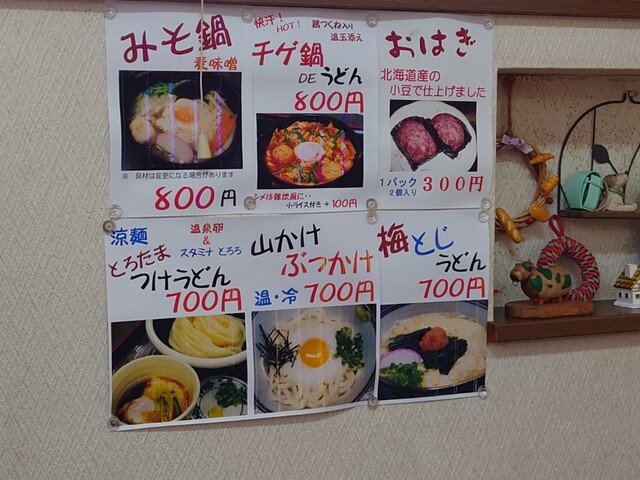 みそ鍋
麦味噌
※ 具材は変更になる場合があります
800円
快汗！
HOT！
鶏つくね入り
温玉添え
チゲ鍋
DEうどん
800円
シメは雑炊風に‥
小ライス付き＋100円
おはぎ
北海道産の
小豆で仕上げました
1パック
2個入り
300円
涼麺
温泉卵
&
スタミナ とろろ
とろたま
つけうどん
700円
山かけ
ぶっかけ
温・冷 700円
梅とじ
うどん
700円